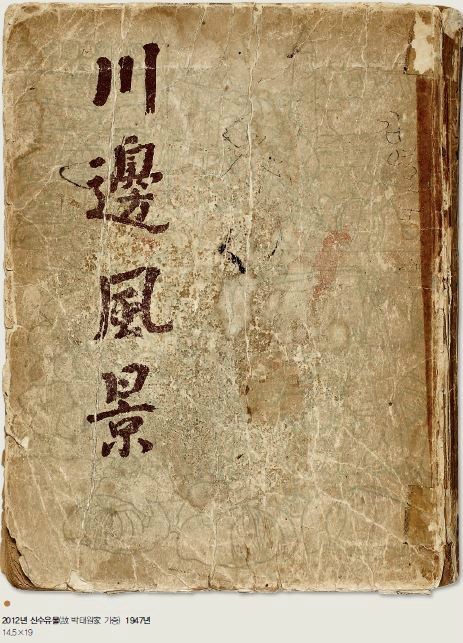 川邊風景
2012년 신수유물(故 박태원家 기증) 1947년
14.5×19